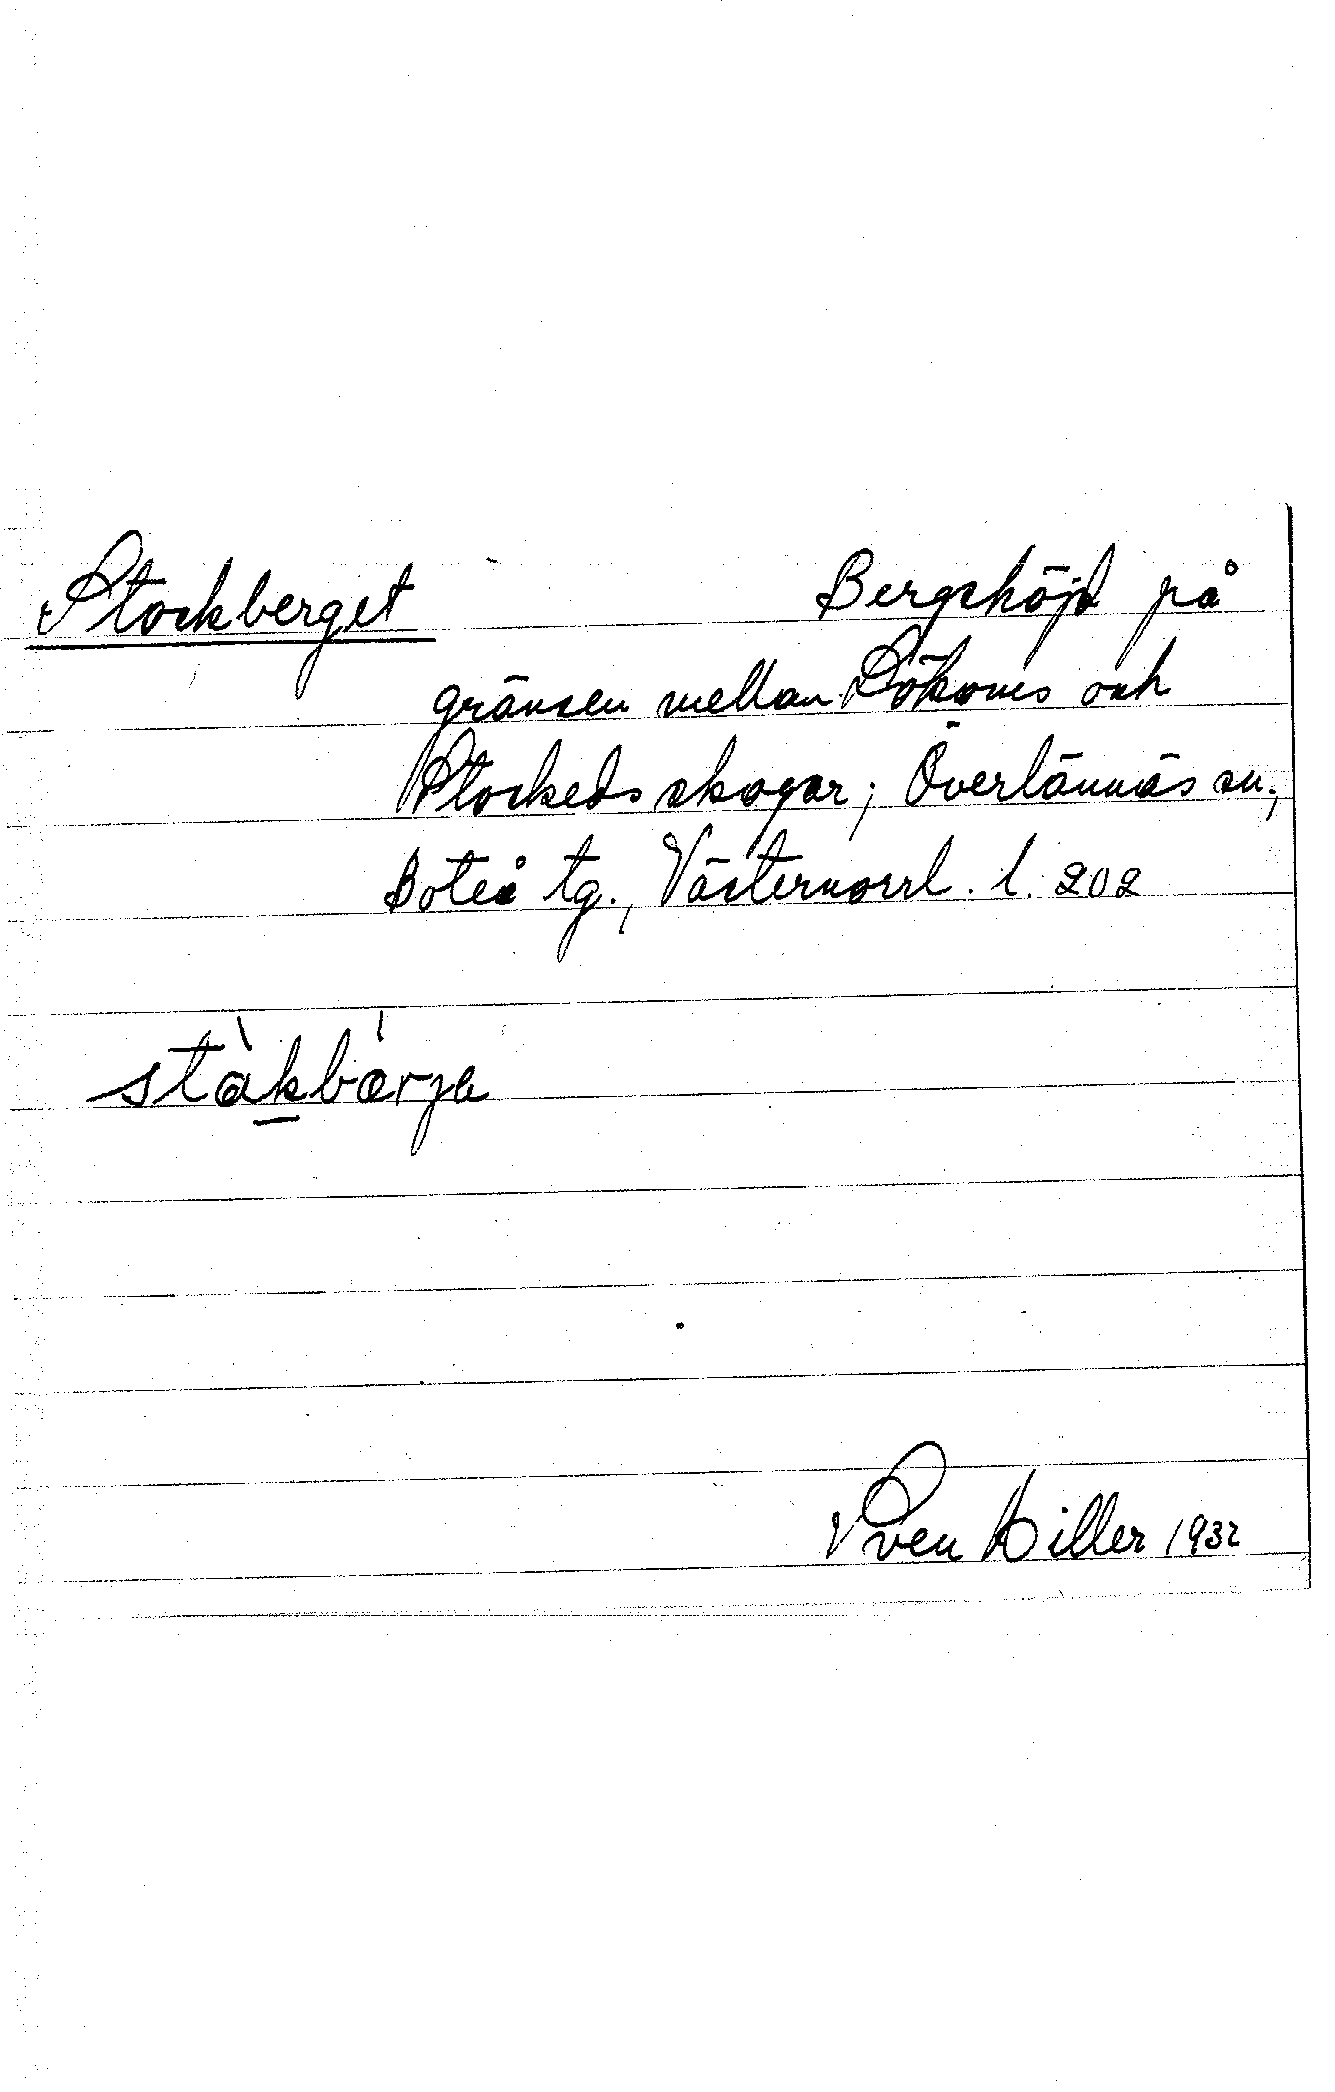 Stockberget Bergshöjd på
gränsen mellan Döksoms och
Stockeds skogar; Överlännäs sn;
Boteå tg., Västernorrl. l. 202
stàkbárja
Sven Hiller 1932